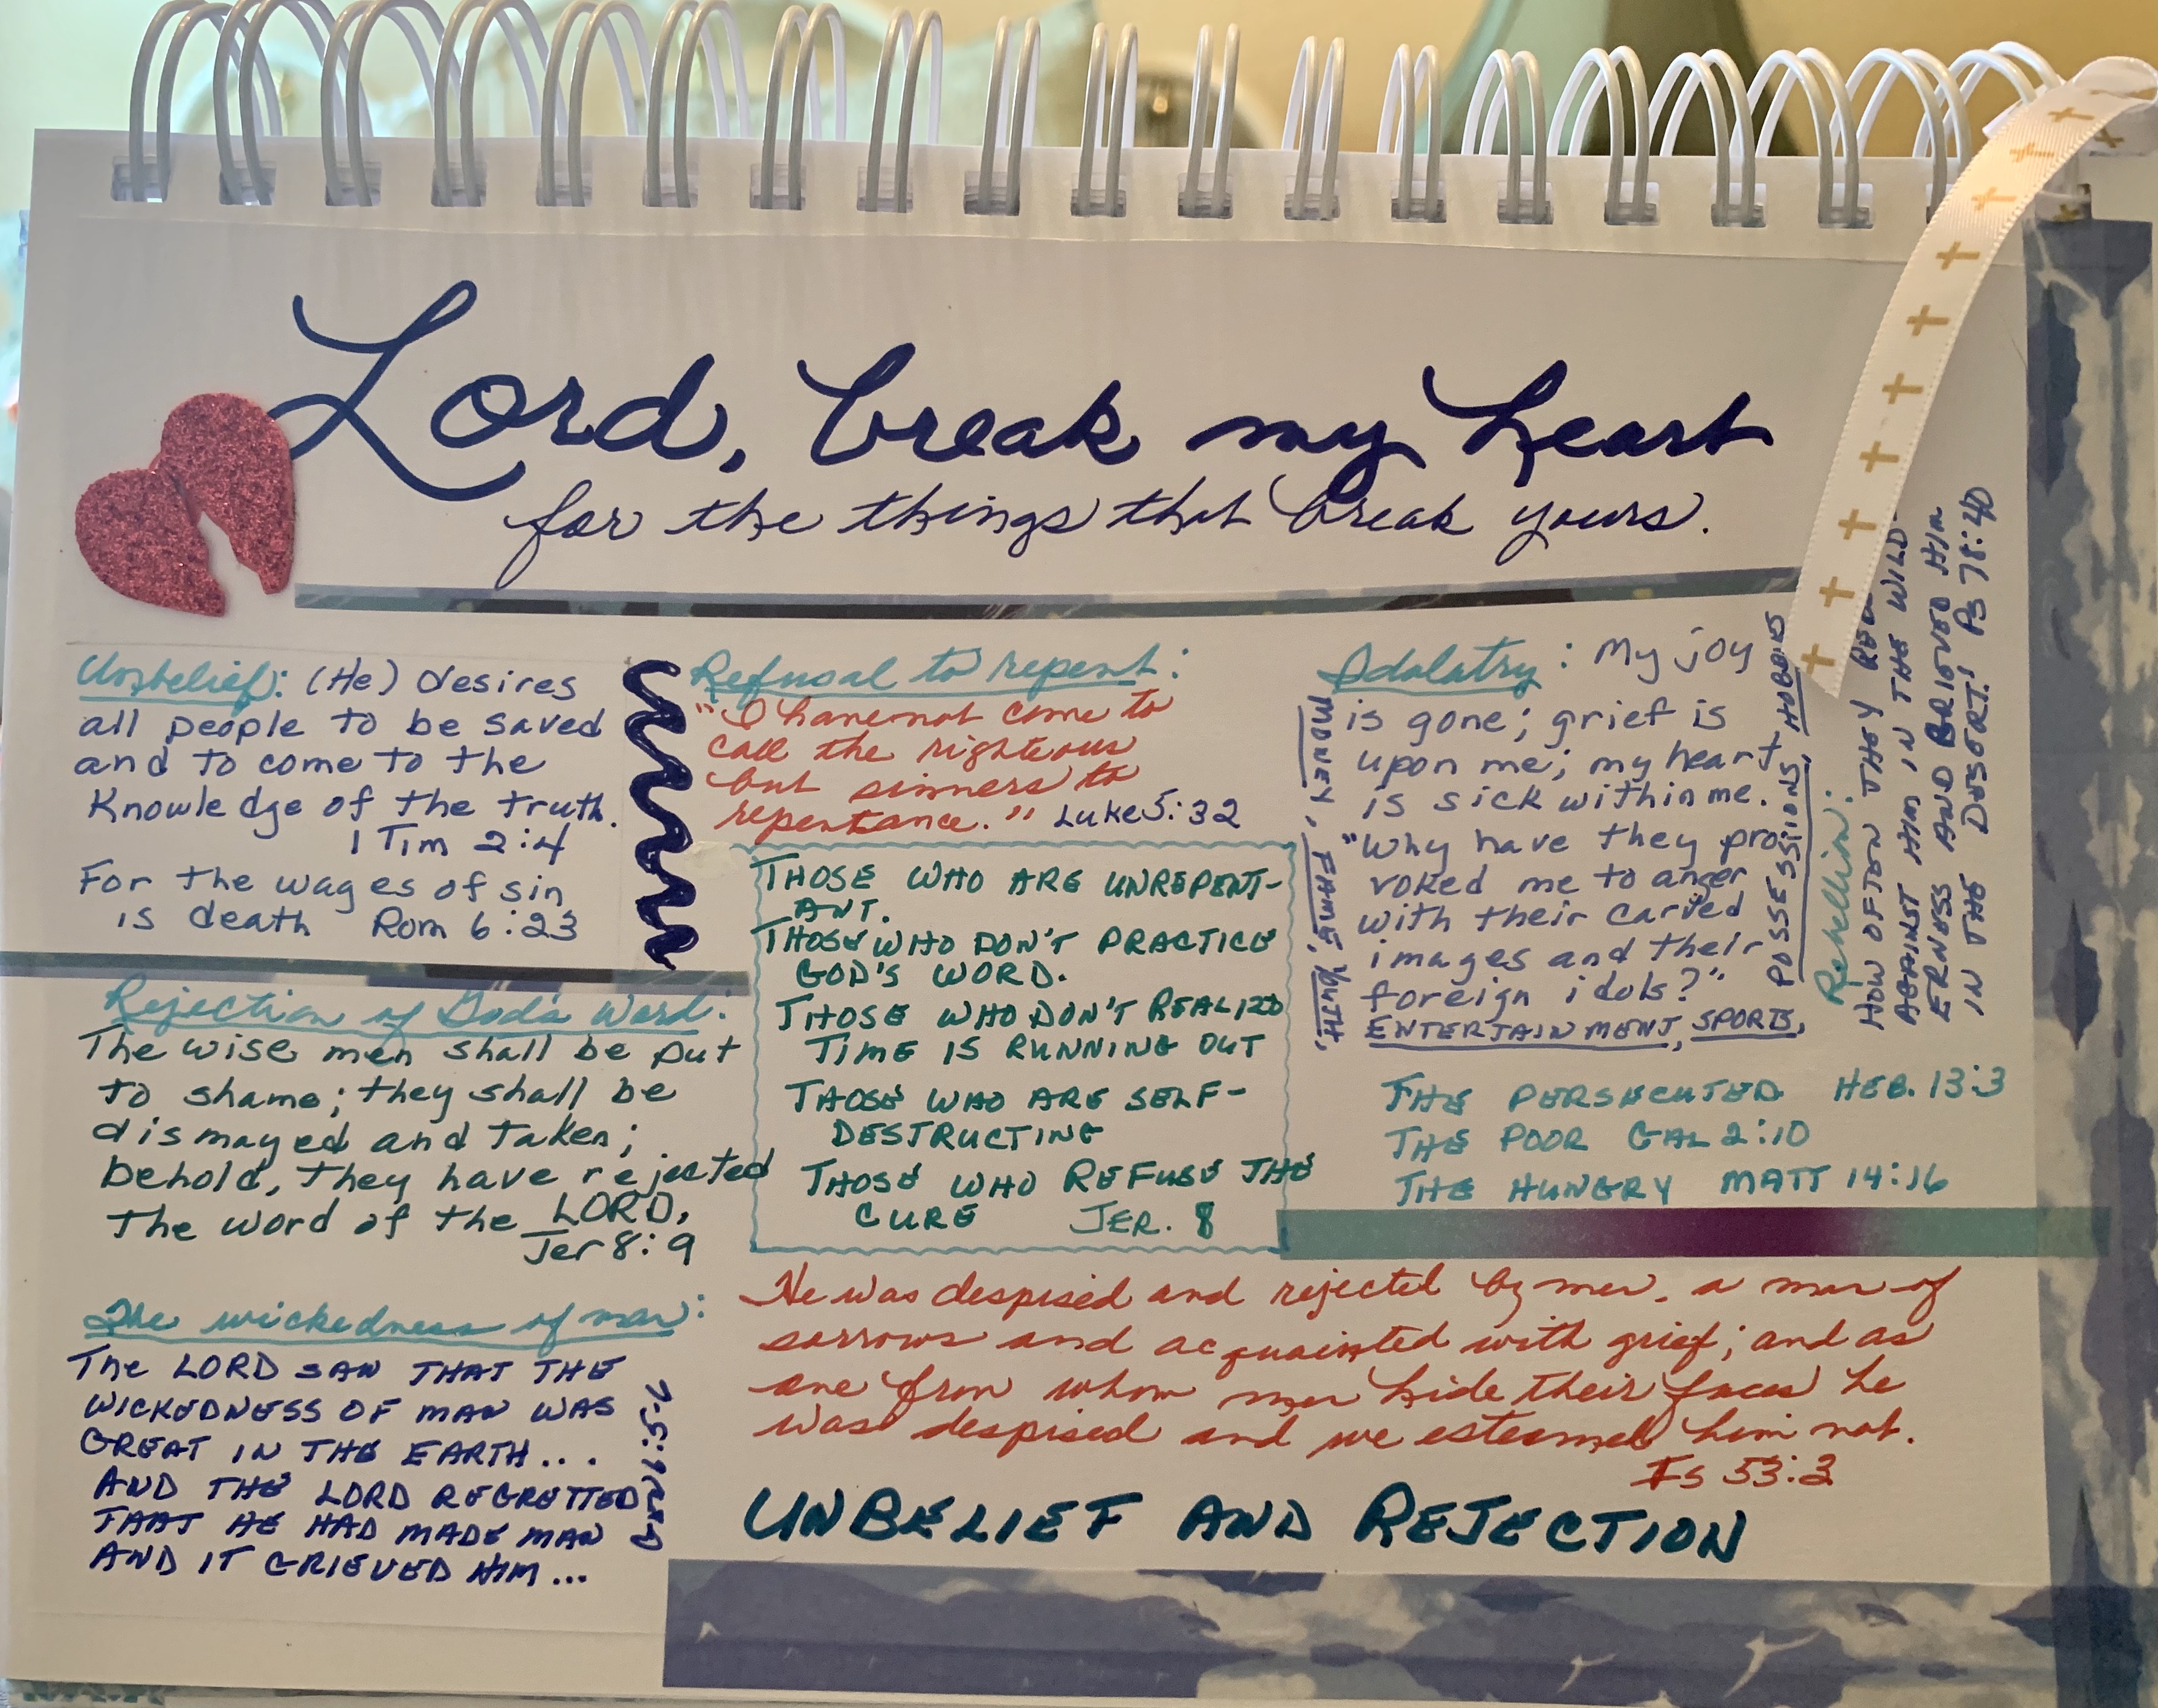 Lord, break my heart
for the things that break yours.
Unbelief: (He) desires
all people to be saved
and to come to the
Knowledge of the truth.
1 Tim 2:4
For the wages of sin
is death Rom 6:23
Rejection of God's Word:
The wise men shall be put
to shame; they shall be
dismayed and taken;
behold, they have rejected
the word of the LORD,
Jer 8:9
The wickedness of man:
The LORD SAW THAT THE
WICKEDNESS OF MAN WAS
GREAT IN THE EARTH...
AND THE LORD REGRETTED
THAT HE HAD MADE MAN
AND IT GRIEVED HIM...
Refusal to repent:
"I have not come to
call the righteous
but sinners to
repentance." Luke 5:32
THOSE WHO ARE UNREPENT-
ANT.
THOSE WHO DON'T PRACTICE
GOD'S WORD.
THOSE WHO DON'T REALIZE
TIME IS RUNNING OUT
THOSE WHO ARE SELF-
DESTRUCTING
THOSE WHO REFUSE THE
CURE JER. 8
Idolatry: My joy
is gone; grief is
upon me; my heart
is sick within me.
"Why have they pro-
voked me to anger
with their carved
images and their
foreign idols?"
MONEY, FAME, YOUTH,
ENTERTAINMENT, SPORTS,
POSSESSIONS, HOBBIES
Rebellion:
HOW OFTEN THEY
AGAINST HIM IN THE WILD-
ERNESS AND GRIEVED HIM
IN THE DESERT! PS 78:40
THE PERSECUTED HEB. 13:3
THE POOR GAL 2:10
THE HUNGRY MATT 14:16
He was despised and rejected by men, a man of
sorrows and acquainted with grief; and as
one from whom men hide their faces he
was despised and we esteemed him not.
Is 53:3
UNBELIEF AND REJECTION